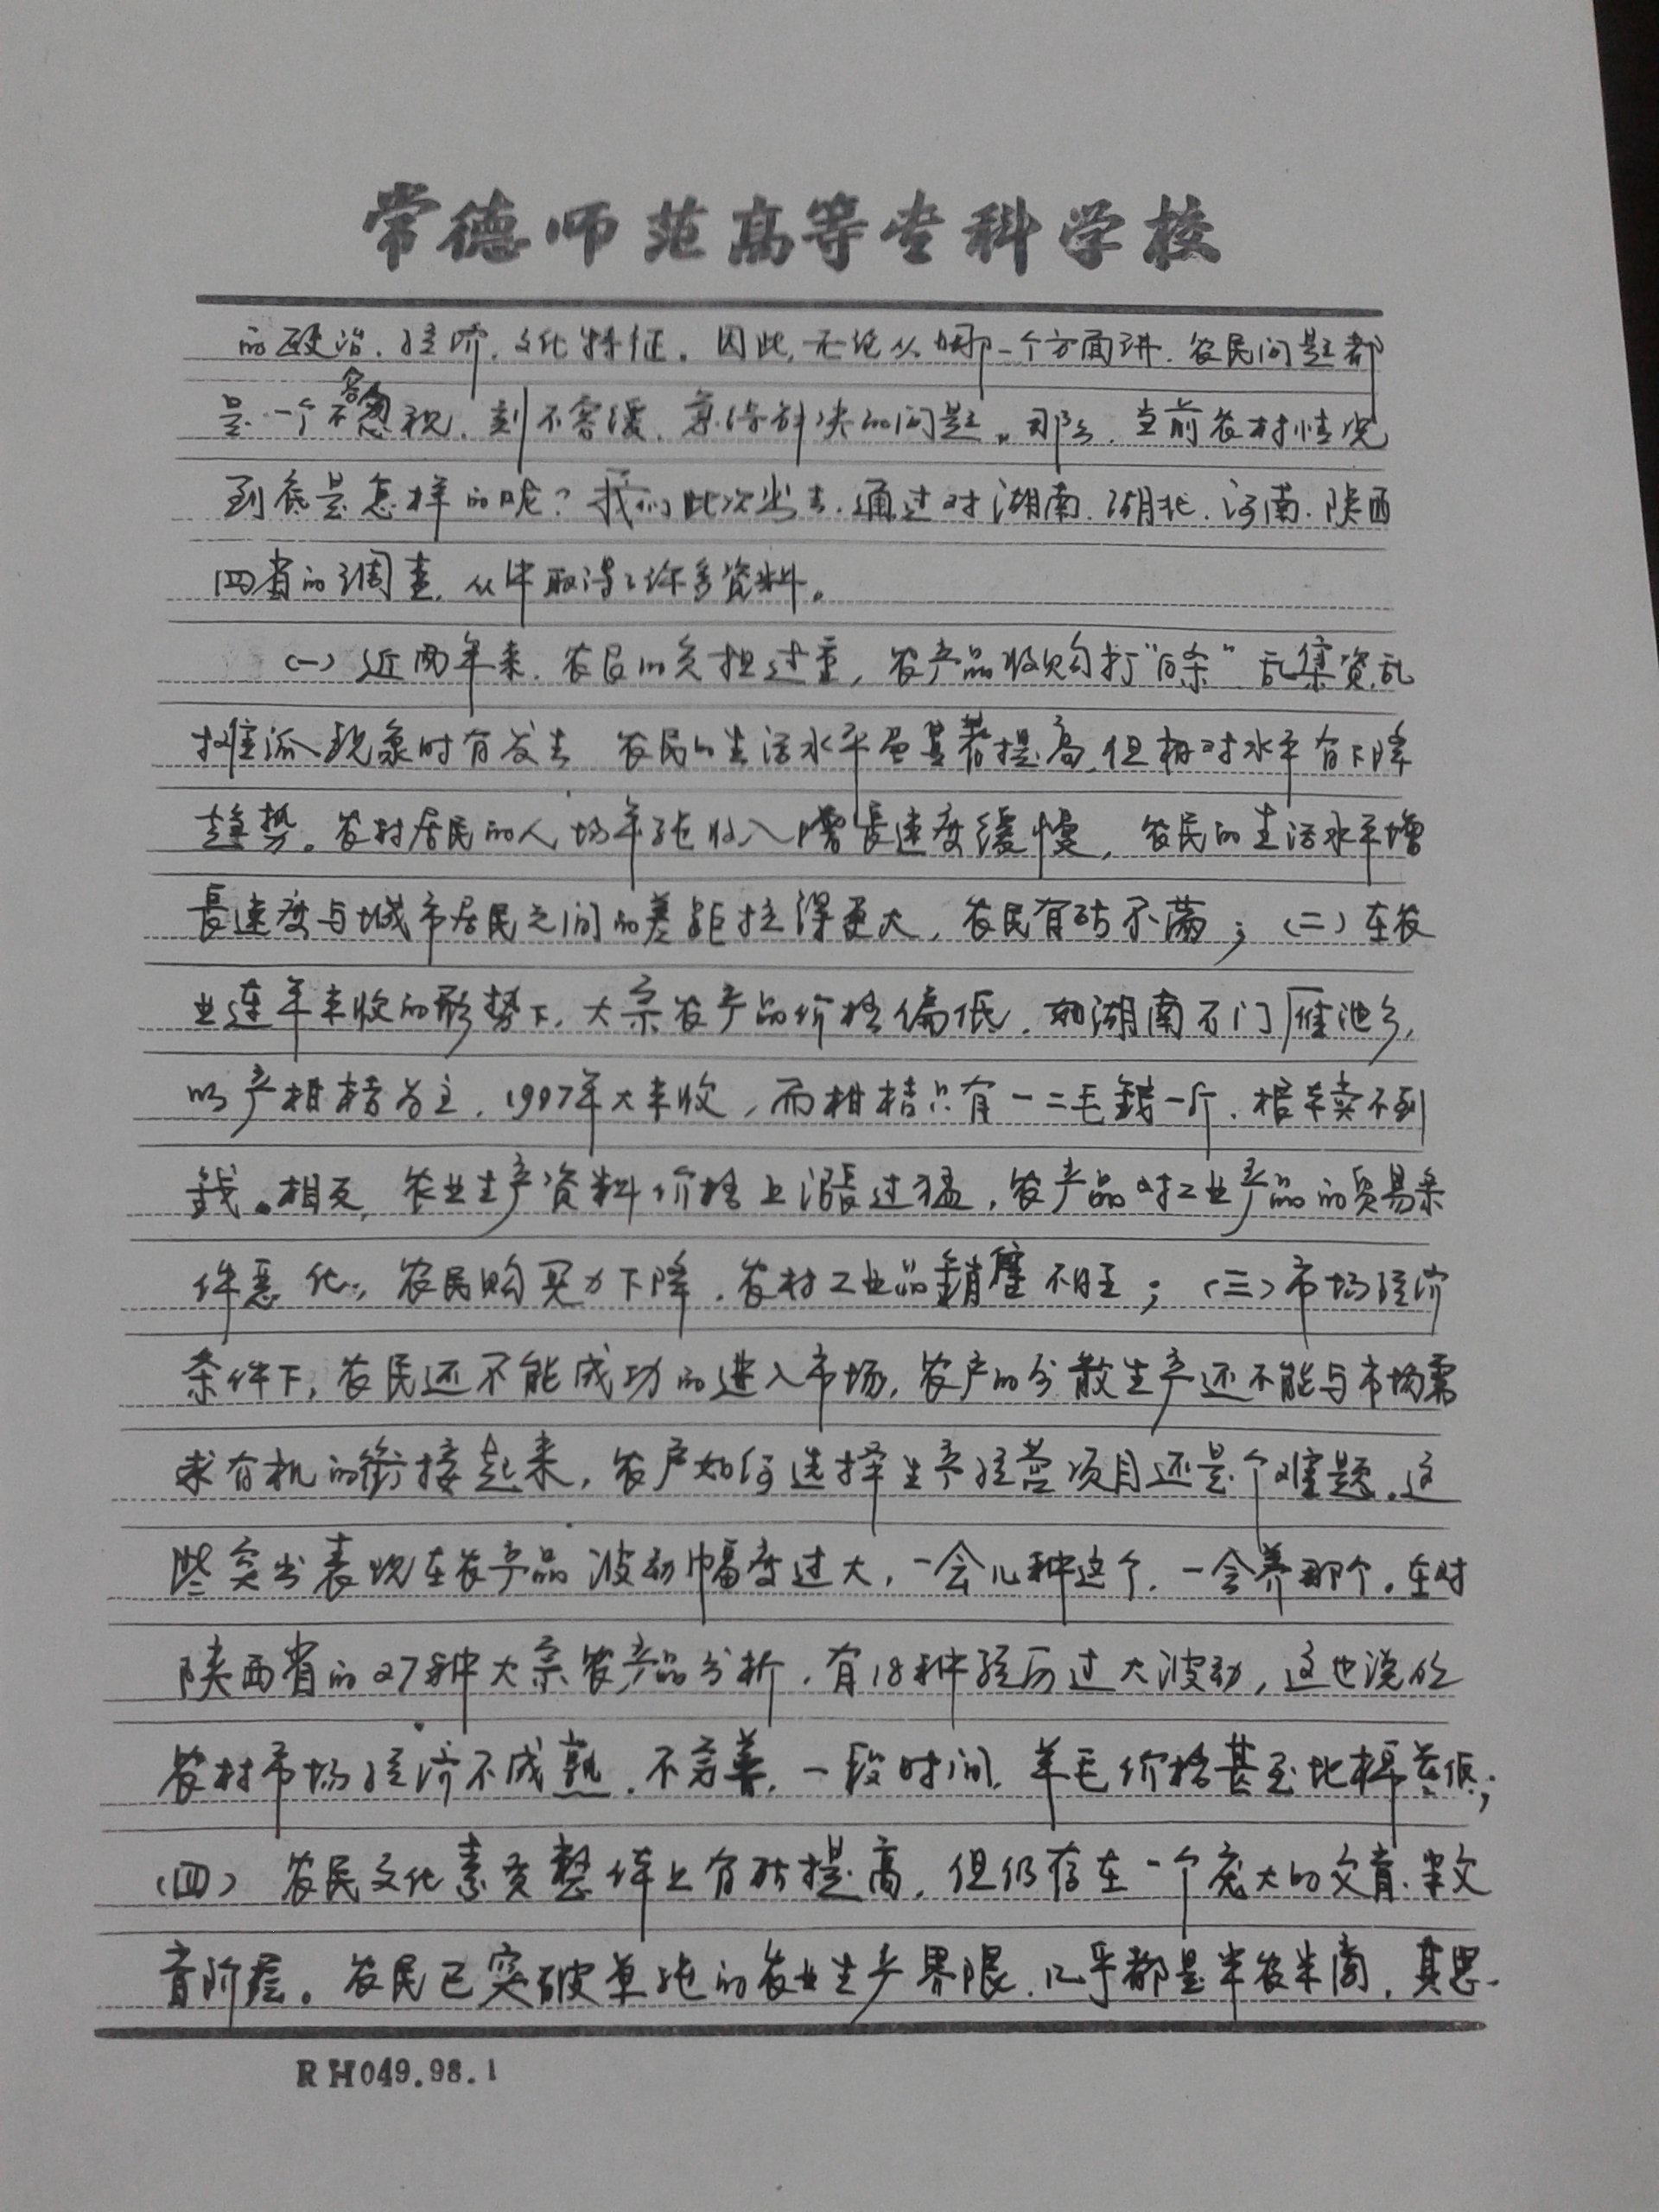 常德师范高等专科学校
的政治、经济、文化特征。因此,无论从哪一个方面讲,农民问题都
是一个不容忽视、刻不容缓、急待解决的问题。那么,当前农村情况
到底是怎样的呢?我们此次出去,通过对湖南、湖北、河南、陕西
四省的调查,从中取得了许多资料。
(一)近两年来,农民的负担过重,农产品收购打“白条”乱集资、乱
摊派现象时有发生,农民的生活水平虽显著提高,但相对水平有下降
趋势。农村居民的人均年纯收入增長速度缓慢,农民的生活水平增
長速度与城市居民之间的差距拉得更大,农民有所不满;(二)在农
业连年丰收的形势下,大宗农产品价格偏低,如湖南石门雁池乡,
以产柑桔为主,1997年大丰收,而柑桔只有一二毛錢一斤,根本卖不到
錢。相反,农业生产资料价格上漲过猛,农产品对工业产品的贸易条
件恶化,农民购买力下降,农村工业品銷售不旺;(三)市场经济
条件下,农民还不能成功的进入市场,农户的分散生产还不能与市场需
求有机的衔接起来,农户如何选择生产经营项目还是个难题。这
些突出表现在农产品波动幅度过大,一会儿种这个,一会养那个。在对
陕西省的27种大宗农产品分析,有18种经历过大波动,这也说明
农村市场经济不成熟、不完善,一段时间,羊毛价格甚至比棉花低;
(四)农民文化素质整体上有所提高,但仍存在一个庞大的文盲、半文
盲阶层。农民已突破单纯的农业生产界限,几乎都是半农半商,其思
RH049.98.1